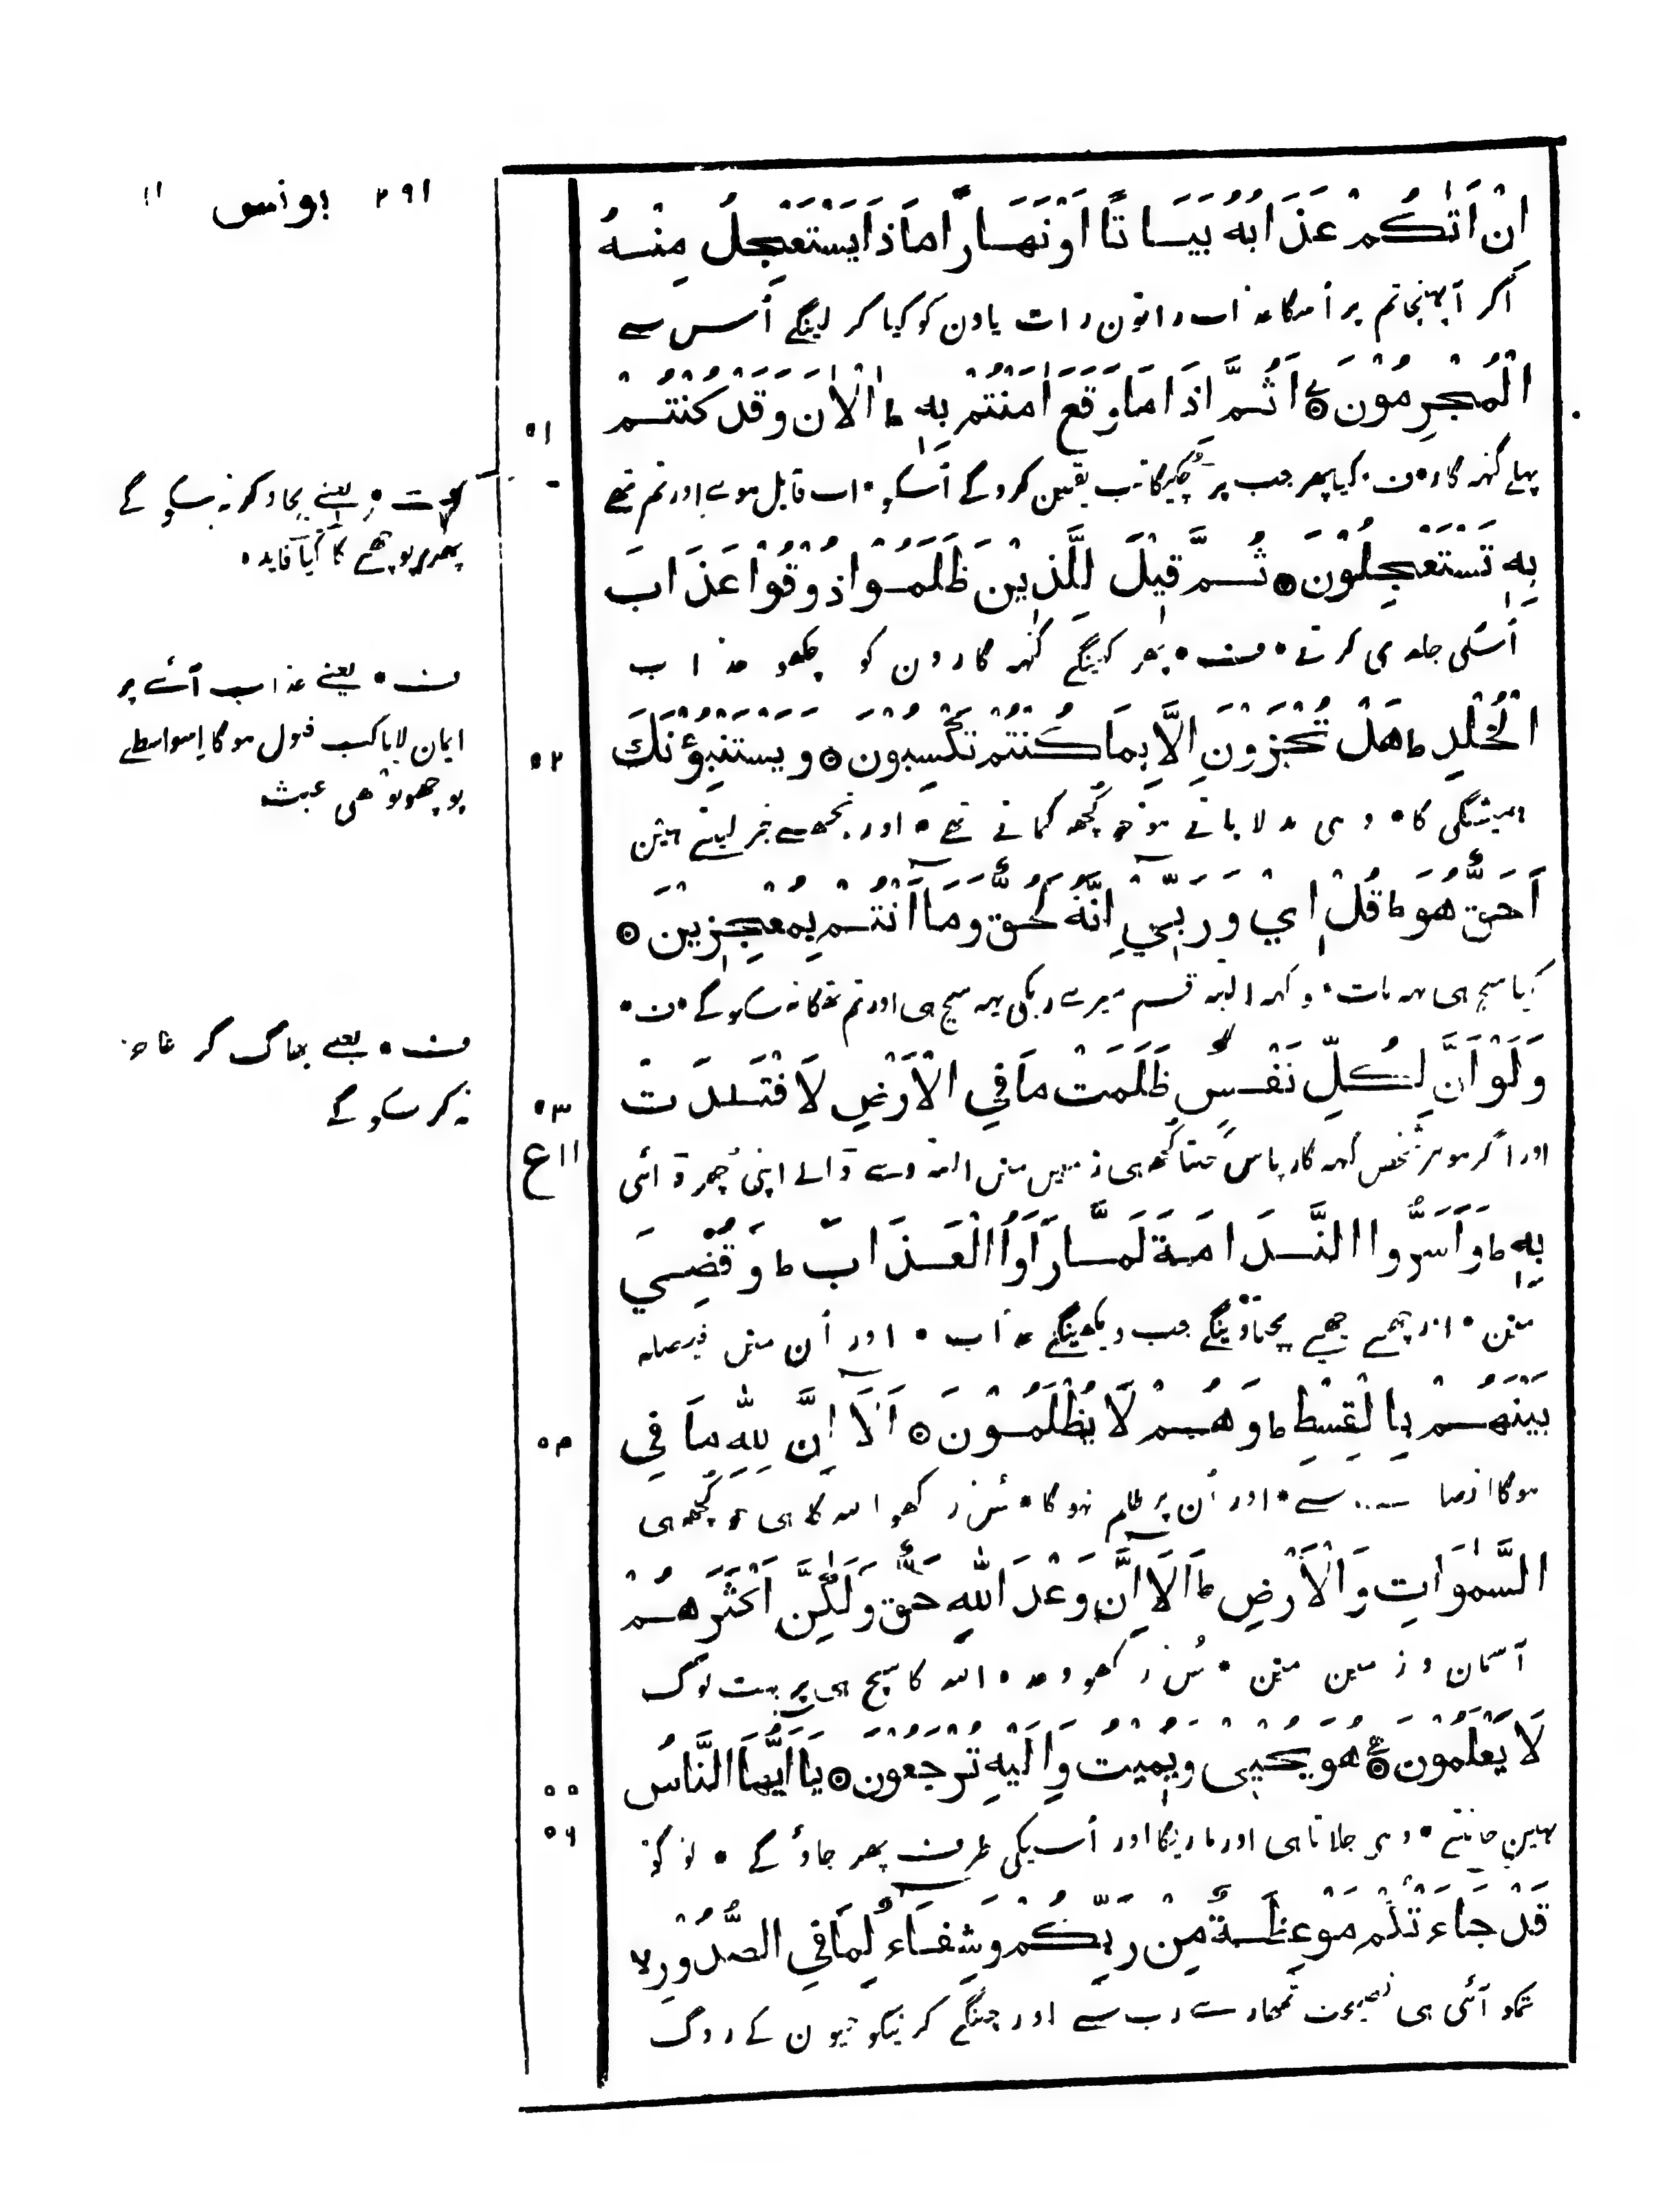 ۲۹۱ یونس ۱۱
اِنْ اَتٰىكُمْ عَذَابُهٗ بَيَاتًا اَوْ نَهَارًا مَّاذَا يَسْتَعْجِلُ مِنْهُ
اگر آپہنچا تم پر أسکا عذاب راتون رات یا دن کو کیا کر لینگے أس سے
الْمُجْرِمُوْنَ ۝ اَثُمَّ اِذَا مَا وَقَعَ اٰمَنْتُمْ بِهٖ ط اٰلْاٰنَ وَقَدْ كُنْتُمْ
۵۱
پہلے گنہ گار • ف • کیا پھر جب پر چکیگا تب یقین کروگے أسکو • اب قابل ہوے اور تم تھے
بِهٖ تَسْتَعْجِلُوْنَ ۝ ثُمَّ قِيْلَ لِلَّذِيْنَ ظَلَمُوْا ذُوْقُوْا عَذَابَ
أسکی جلدی کرتے • ف • پھر کہینگے گنہ گارون کو چکھو عذاب
الْخُلْدِ ط هَلْ تُجْزَوْنَ اِلَّا بِمَا كُنْتُمْ تَكْسِبُوْنَ ۝ وَيَسْتَنْبِؤُنَكَ
۵۲
ہمیشگی کا • وہی بدلا پاتے ہو جو کچھ کماتے تھے • اور تجھ سے خبر لیتے ہین
اَحَقٌّ هُوَ ط قُلْ اِيْ وَرَبِّيْ اِنَّهٗ لَحَقٌّ وَمَا اَنْتُمْ بِمُعْجِزِيْنَ ۝
کیا سچ ہی یہہ بات • تو کہہ البتہ قسم میرے رب کی یہہ سچ ہی اور تم تھکا نہ سکوگے • ف •
وَلَوْ اَنَّ لِكُلِّ نَفْسٍ ظَلَمَتْ مَا فِي الْاَرْضِ لَافْتَدَتْ
۵۳
۱۱ ع
اور اگر ہو ہر شخص گنہ گار پاس جتنا کچھ ہی زمین مین البتہ دے ڈالے اپنی چھڑوائی
بِهٖ ط وَاَسَرُّوا النَّدَامَةَ لَمَّا رَاَوُا الْعَذَابَ ط وَقُضِيَ
مین • اور چھپے چھپے پچتاوینگے جب دیکھینگے عذاب • اور أن مین فیصلہ
بَيْنَهُمْ بِالْقِسْطِ ط وَهُمْ لَا يُظْلَمُوْنَ ۝ اَلَا اِنَّ لِلّٰهِ مَا فِي
۵۴
ہوگا انصاف سے • اور أن پر ظلم نہوگا • سُن رکھو اللہ کا ہی جو کچھ ہی
السَّمٰوَاتِ وَالْاَرْضِ ط اَلَا اِنَّ وَعْدَ اللّٰهِ حَقٌّ وَّلٰكِنَّ اَكْثَرَهُمْ
آسمان و زمین مین • سُن رکھو وعدہ اللہ کا سچ ہی پر بہت لوگ
لَا يَعْلَمُوْنَ ۝ هُوَ يُحْيِيْ وَيُمِيْتُ وَاِلَيْهِ تُرْجَعُوْنَ ۝ يَا اَيُّهَا النَّاسُ
۵۵
۵۶
نہین جانتے • وہی جلاتا ہی اور ماریگا اور أسیکی طرف پھر جاؤ گے • لوگو
قَدْ جَاءَتْكُمْ مَوْعِظَةٌ مِّنْ رَّبِّكُمْ وَشِفَاءٌ لِّمَا فِي الصُّدُوْرِ لا
تمکو آئی ہی نصیحت تمھارے رب سے اور چنگے کرنیکو جیون کے روگ
ف • یعنے بچاو کر نہ سکو گے
پھر پوچھنے کا کیا فایدہ
ف • یعنے عذاب آئے پر
ایمان لایا کب قبول ہوگا اسواسطے
پوچھو تو بھی عبث
ف • یعنے بھاگ کر عاجز
نہ کر سکو گے